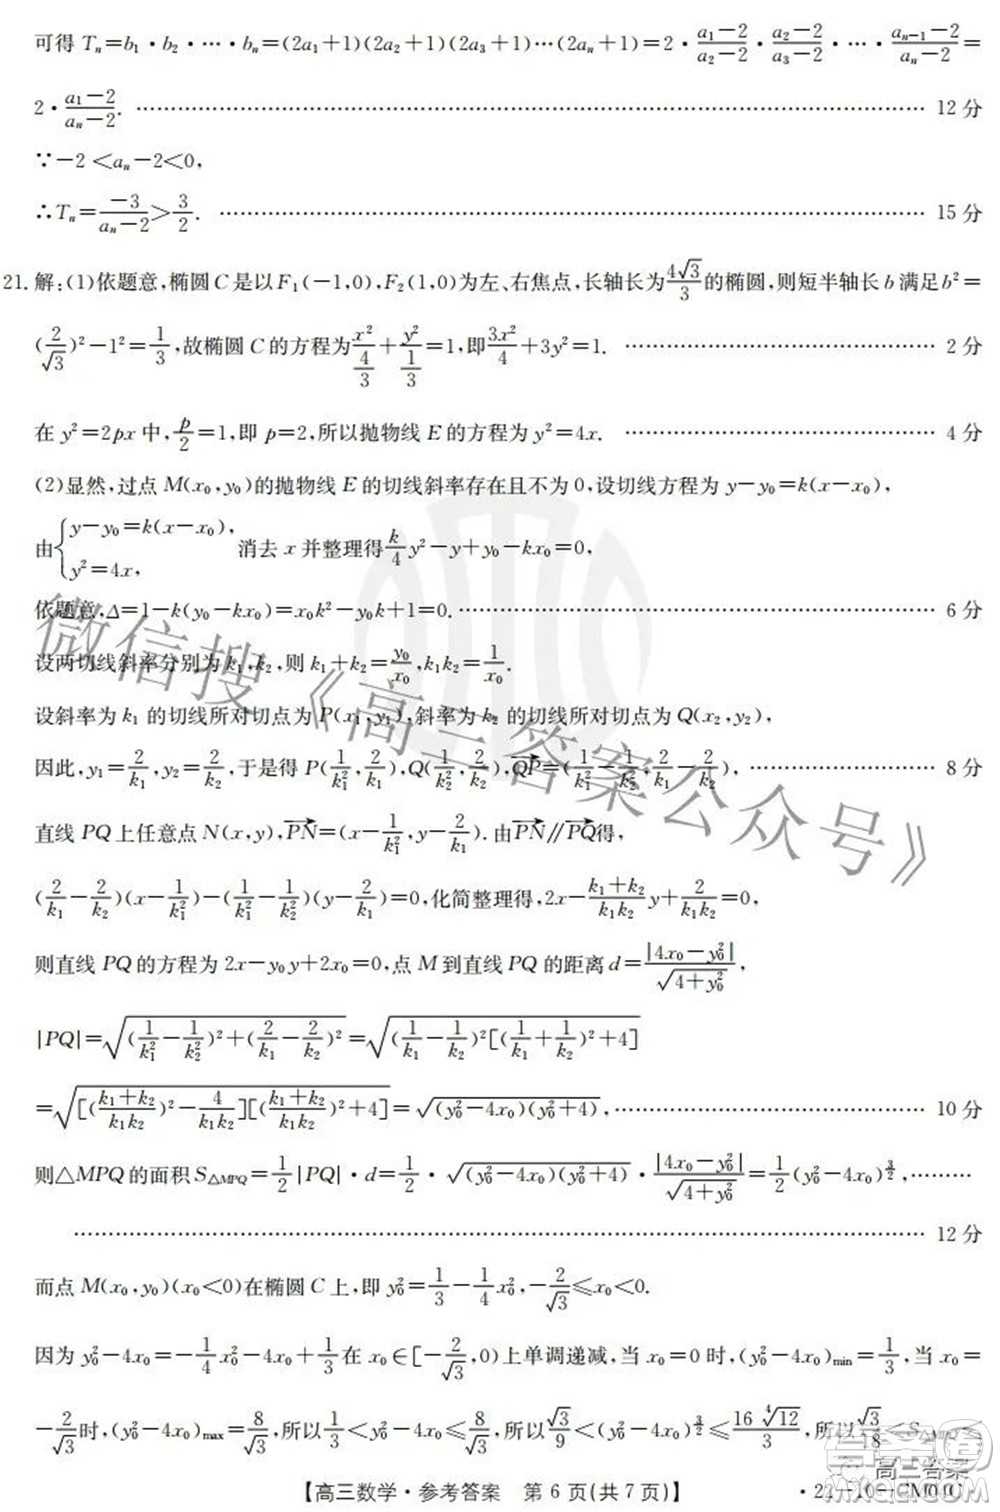 可得 Tₙ=b₁·b₂·…·bₙ=(2a₁+1)(2a₂+1)(2a₃+1)…(2aₙ+1)=2·\frac{a₁-2}{a₂-2}·\frac{a₂-2}{a₃-2}·…·\frac{aₙ₋₁-2}{aₙ-2}=
2·\frac{a₁-2}{aₙ-2}. …… 12 分
∵-2<aₙ-2<0,
∴Tₙ=\frac{-3}{aₙ-2}>\frac{3}{2}. …… 15 分
21.解:(1)依题意,椭圆 C 是以 F₁(-1,0),F₂(1,0)为左、右焦点,长轴长为\frac{4√3}{3}的椭圆,则短半轴长 b 满足 b²=
(\frac{2}{√3})²-1²=\frac{1}{3},故椭圆 C 的方程为\frac{x²}{\frac{4}{3}}+\frac{y²}{\frac{1}{3}}=1,即\frac{3x²}{4}+3y²=1. …… 2 分
在 y²=2px 中,\frac{p}{2}=1,即 p=2,所以抛物线 E 的方程为 y²=4x. …… 4 分
(2)显然,过点 M(x₀,y₀)的抛物线 E 的切线斜率存在且不为 0,设切线方程为 y-y₀=k(x-x₀),
由{y-y₀=k(x-x₀), y²=4x, 消去 x 并整理得\frac{k}{4}y²-y+y₀-kx₀=0,
依题意,Δ=1-k(y₀-kx₀)=x₀k²-y₀k+1=0. …… 6 分
设两切线斜率分别为 k₁,k₂,则 k₁+k₂=\frac{y₀}{x₀},k₁k₂=\frac{1}{x₀}.
设斜率为 k₁ 的切线所对切点为 P(x₁,y₁),斜率为 k₂ 的切线所对切点为 Q(x₂,y₂),
因此,y₁=\frac{2}{k₁},y₂=\frac{2}{k₂},于是得 P(\frac{1}{k₁²},\frac{2}{k₁}),Q(\frac{1}{k₂²},\frac{2}{k₂}),\overrightarrow{QP}=(\frac{1}{k₁²}-\frac{1}{k₂²},\frac{2}{k₁}-\frac{2}{k₂}), …… 8 分
直线 PQ 上任意点 N(x,y),\overrightarrow{PN}=(x-\frac{1}{k₁²},y-\frac{2}{k₁}).由\overrightarrow{PN}∥\overrightarrow{PQ}得,
(\frac{2}{k₁}-\frac{2}{k₂})(x-\frac{1}{k₁²})-(\frac{1}{k₁²}-\frac{1}{k₂²})(y-\frac{2}{k₁})=0,化简整理得,2x-\frac{k₁+k₂}{k₁k₂}y+\frac{2}{k₁k₂}=0,
则直线 PQ 的方程为 2x-y₀y+2x₀=0,点 M 到直线 PQ 的距离 d=\frac{|4x₀-y₀²|}{\sqrt{4+y₀²}},
|PQ|=\sqrt{(\frac{1}{k₁²}-\frac{1}{k₂²})²+(\frac{2}{k₁}-\frac{2}{k₂})²}=\sqrt{(\frac{1}{k₁}-\frac{1}{k₂})²[(\frac{1}{k₁}+\frac{1}{k₂})²+4]}
=\sqrt{[(\frac{k₁+k₂}{k₁k₂})²-\frac{4}{k₁k₂}][(\frac{k₁+k₂}{k₁k₂})²+4]}=\sqrt{(y₀²-4x₀)(y₀²+4)}, …… 10 分
则△MPQ 的面积 S_{△MPQ}=\frac{1}{2}|PQ|·d=\frac{1}{2}·\sqrt{(y₀²-4x₀)(y₀²+4)}·\frac{|4x₀-y₀²|}{\sqrt{4+y₀²}}=\frac{1}{2}(y₀²-4x₀)^{\frac{3}{2}}, ……
…… 12 分
而点 M(x₀,y₀)(x₀<0)在椭圆 C 上,即 y₀²=\frac{1}{3}-\frac{1}{4}x₀²,-\frac{2}{√3}≤x₀<0.
因为 y₀²-4x₀=-\frac{1}{4}x₀²-4x₀+\frac{1}{3}在 x₀∈[-\frac{2}{√3},0)上单调递减,当 x₀=0 时,(y₀²-4x₀)min=\frac{1}{3},当 x₀=
-\frac{2}{√3}时,(y₀²-4x₀)max=\frac{8}{√3},所以\frac{1}{3}<y₀²-4x₀≤\frac{8}{√3},所以\frac{√3}{9}<(y₀²-4x₀)^{\frac{3}{2}}≤\frac{16\sqrt[4]{12}}{3},所以\frac{√3}{18}<S_{△MPQ}
【高三数学·参考答案 第 6 页(共 7 页)】
·22-10-CM01C·
微信搜《高三答案公众号》
高三答案